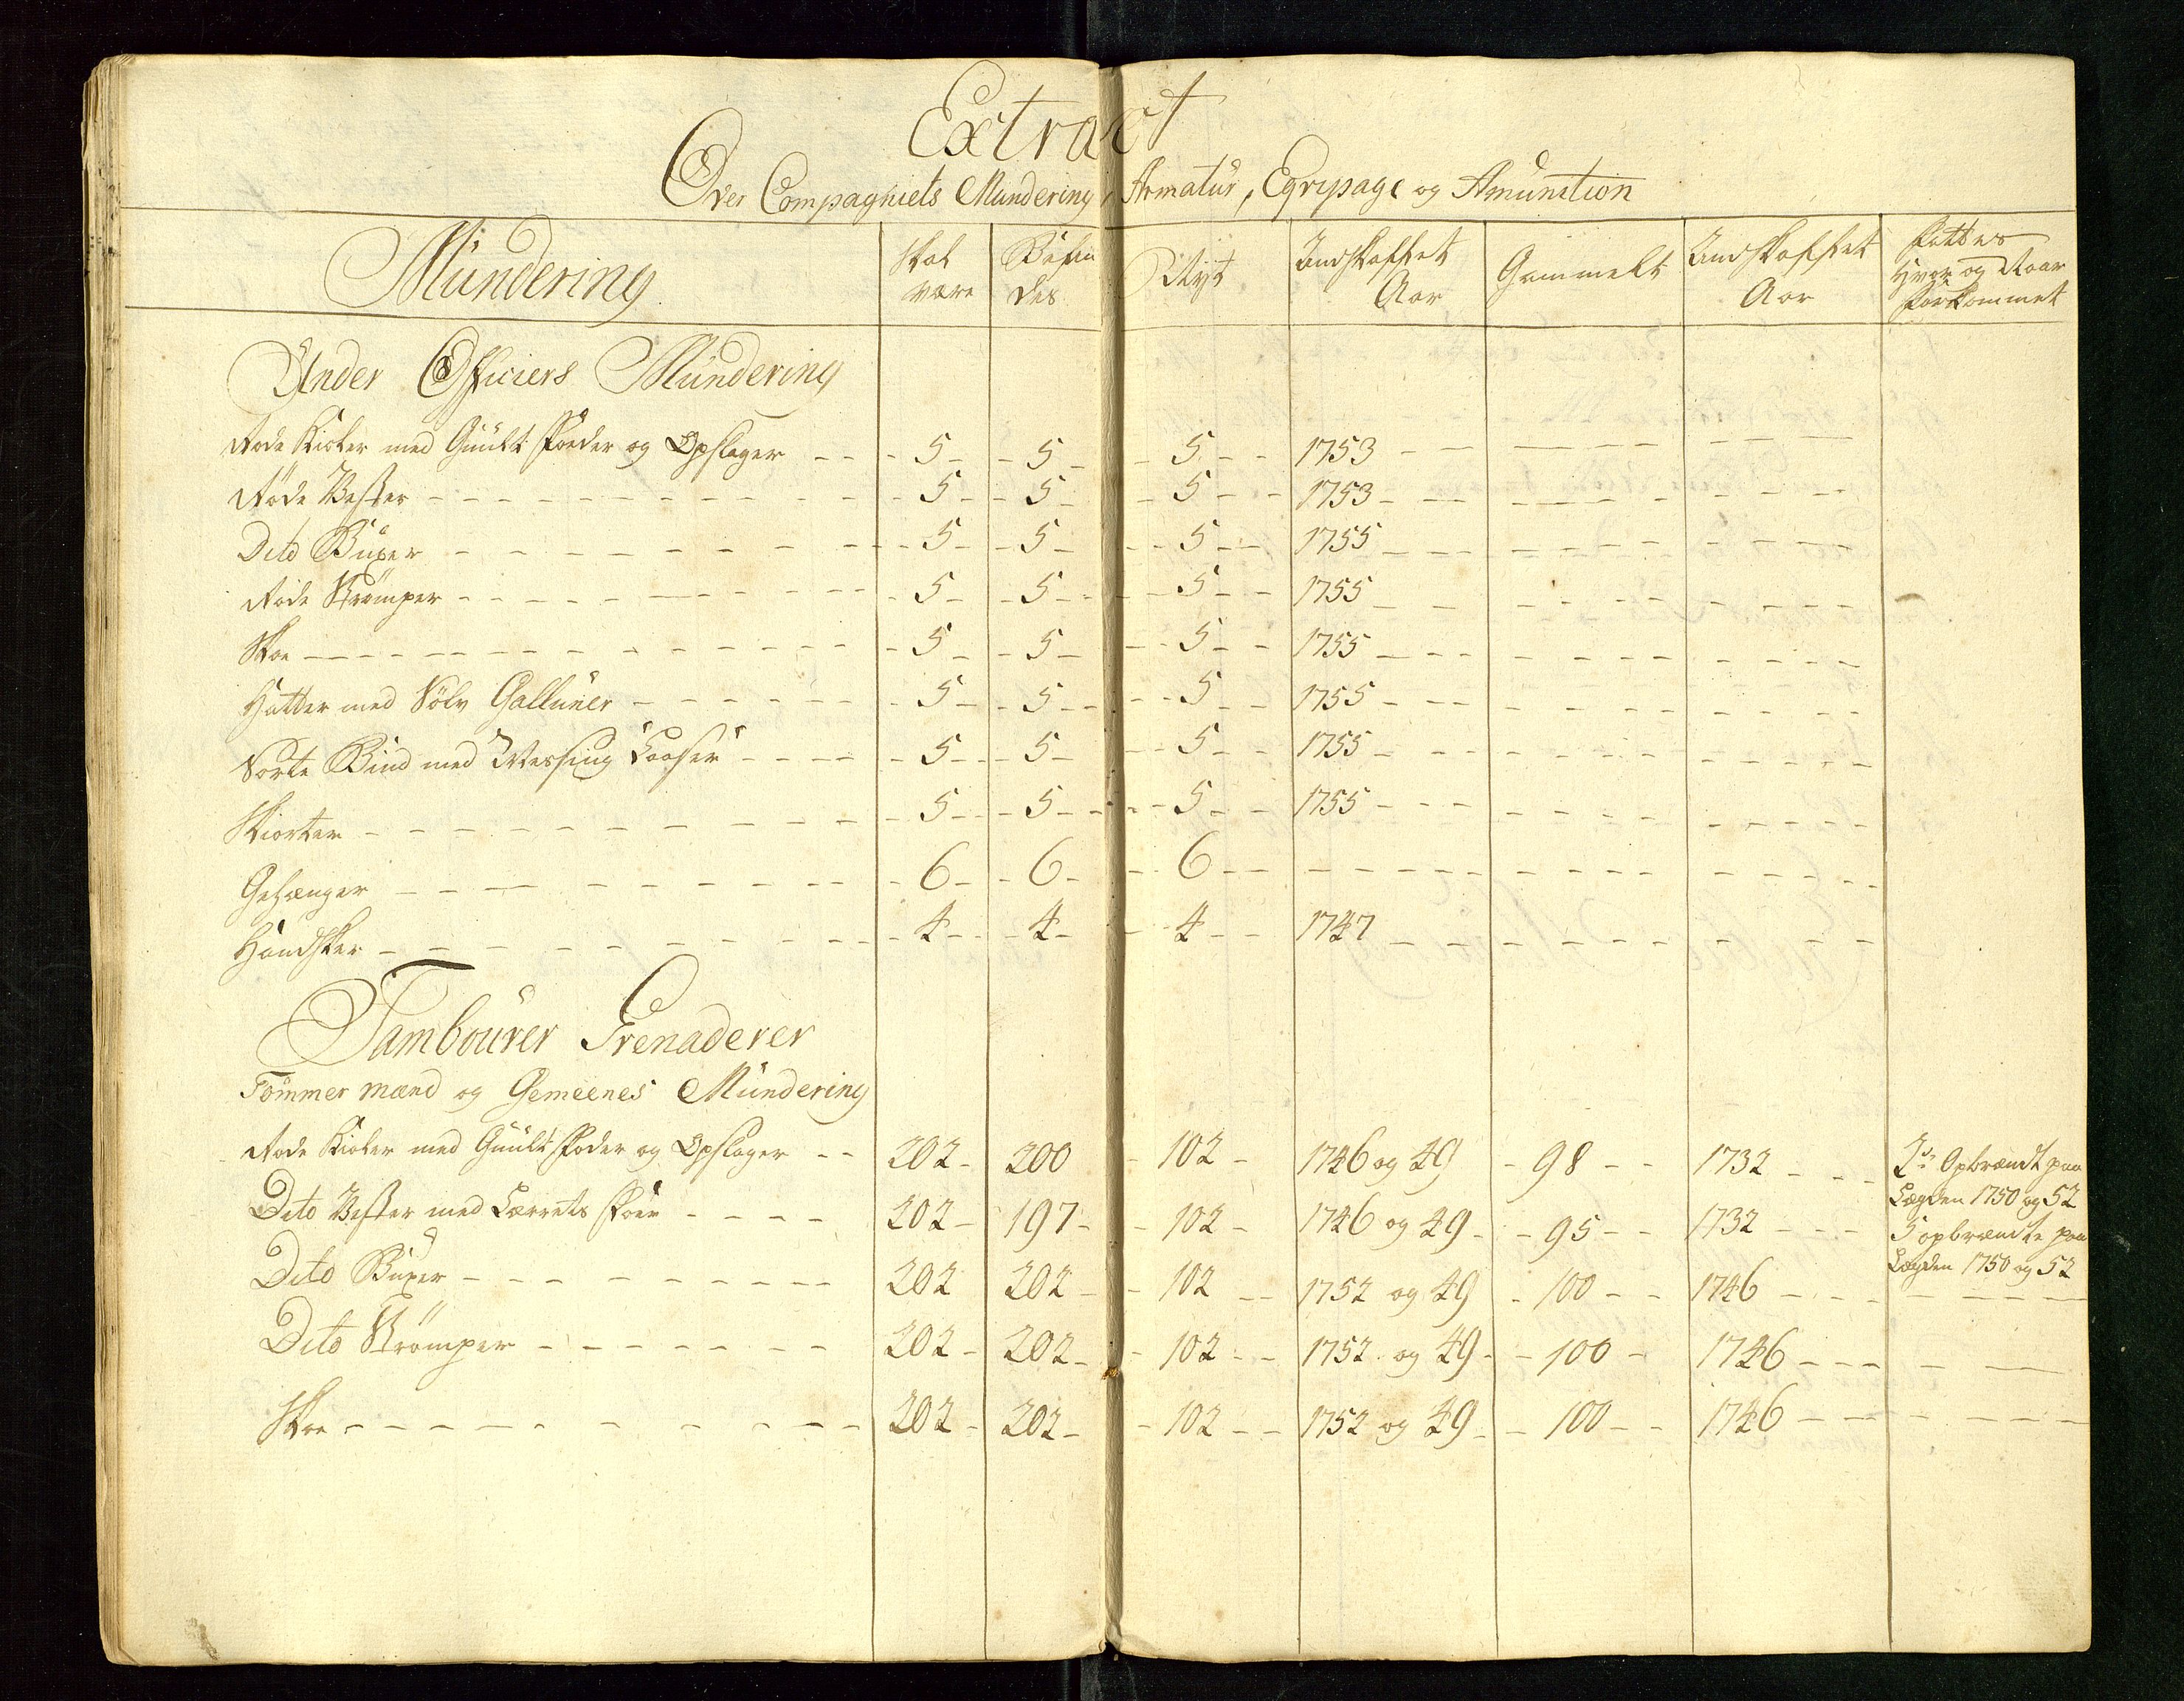 Extract
Over Compagniets Mundering, Armatur, Eqvipage og Amunition
Mundering | Skal være | Befindes | Nyt | Indskaffet Aar | Gammelt | Indskaffet Aar | Fattes Hvor og Naar forkommet
Under Officiers Mundering
Røde Kioler med Guult Foeder og Opslager | 5 | 5 | 5 | 1753
Røde Vester | 5 | 5 | 5 | 1753
Dito Buxer | 5 | 5 | 5 | 1755
Røde Strømper | 5 | 5 | 5 | 1755
Skoe | 5 | 5 | 5 | 1755
Hatter med Sølv Galluner | 5 | 5 | 5 | 1755
Sorte Bind med Messing Laaser | 5 | 5 | 5 | 1755
Skiorter | 5 | 5 | 5 | 1755
Gehænger | 6 | 6 | 6
Handsker | 4 | 4 | 4 | 1747
Tambourer Grenaderer
Tømmer mænd og Gemeenes Mundering
Røde Kioler med Guult Foder og Opslager | 202 | 200 | 102 | 1746 og 49 | 98 | 1732 | 2de Opbrændt paa Lægden 1750 og 52
Dito Vester med Lærrets Foer | 202 | 197 | 102 | 1746 og 49 | 95 | 1732 | 5 opbrændte paa Lægden 1750 og 52
Dito Buxer | 202 | 202 | 102 | 1752 og 49 | 100 | 1746
Dito Strømper | 202 | 202 | 102 | 1752 og 49 | 100 | 1746
Skoe | 202 | 202 | 102 | 1752 og 49 | 100 | 1746